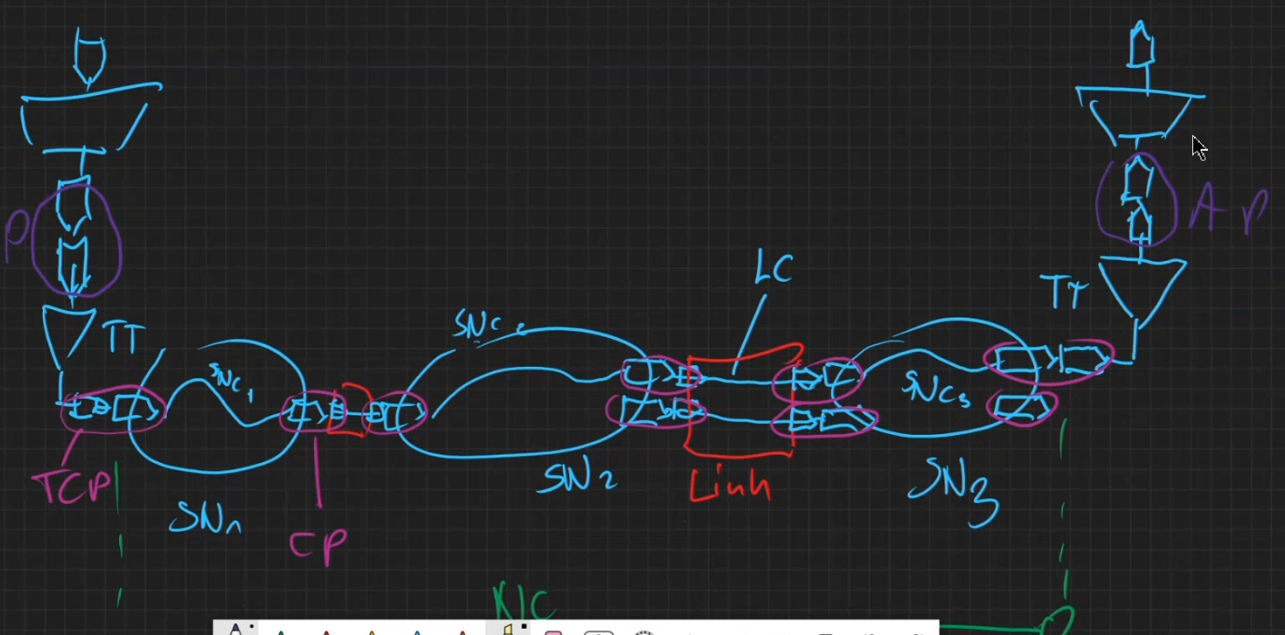 P
AP
LC
TT
TT
SNC
SNC1
SNC3
TCP
SN1
CP
SN2
Link
SN3
NC